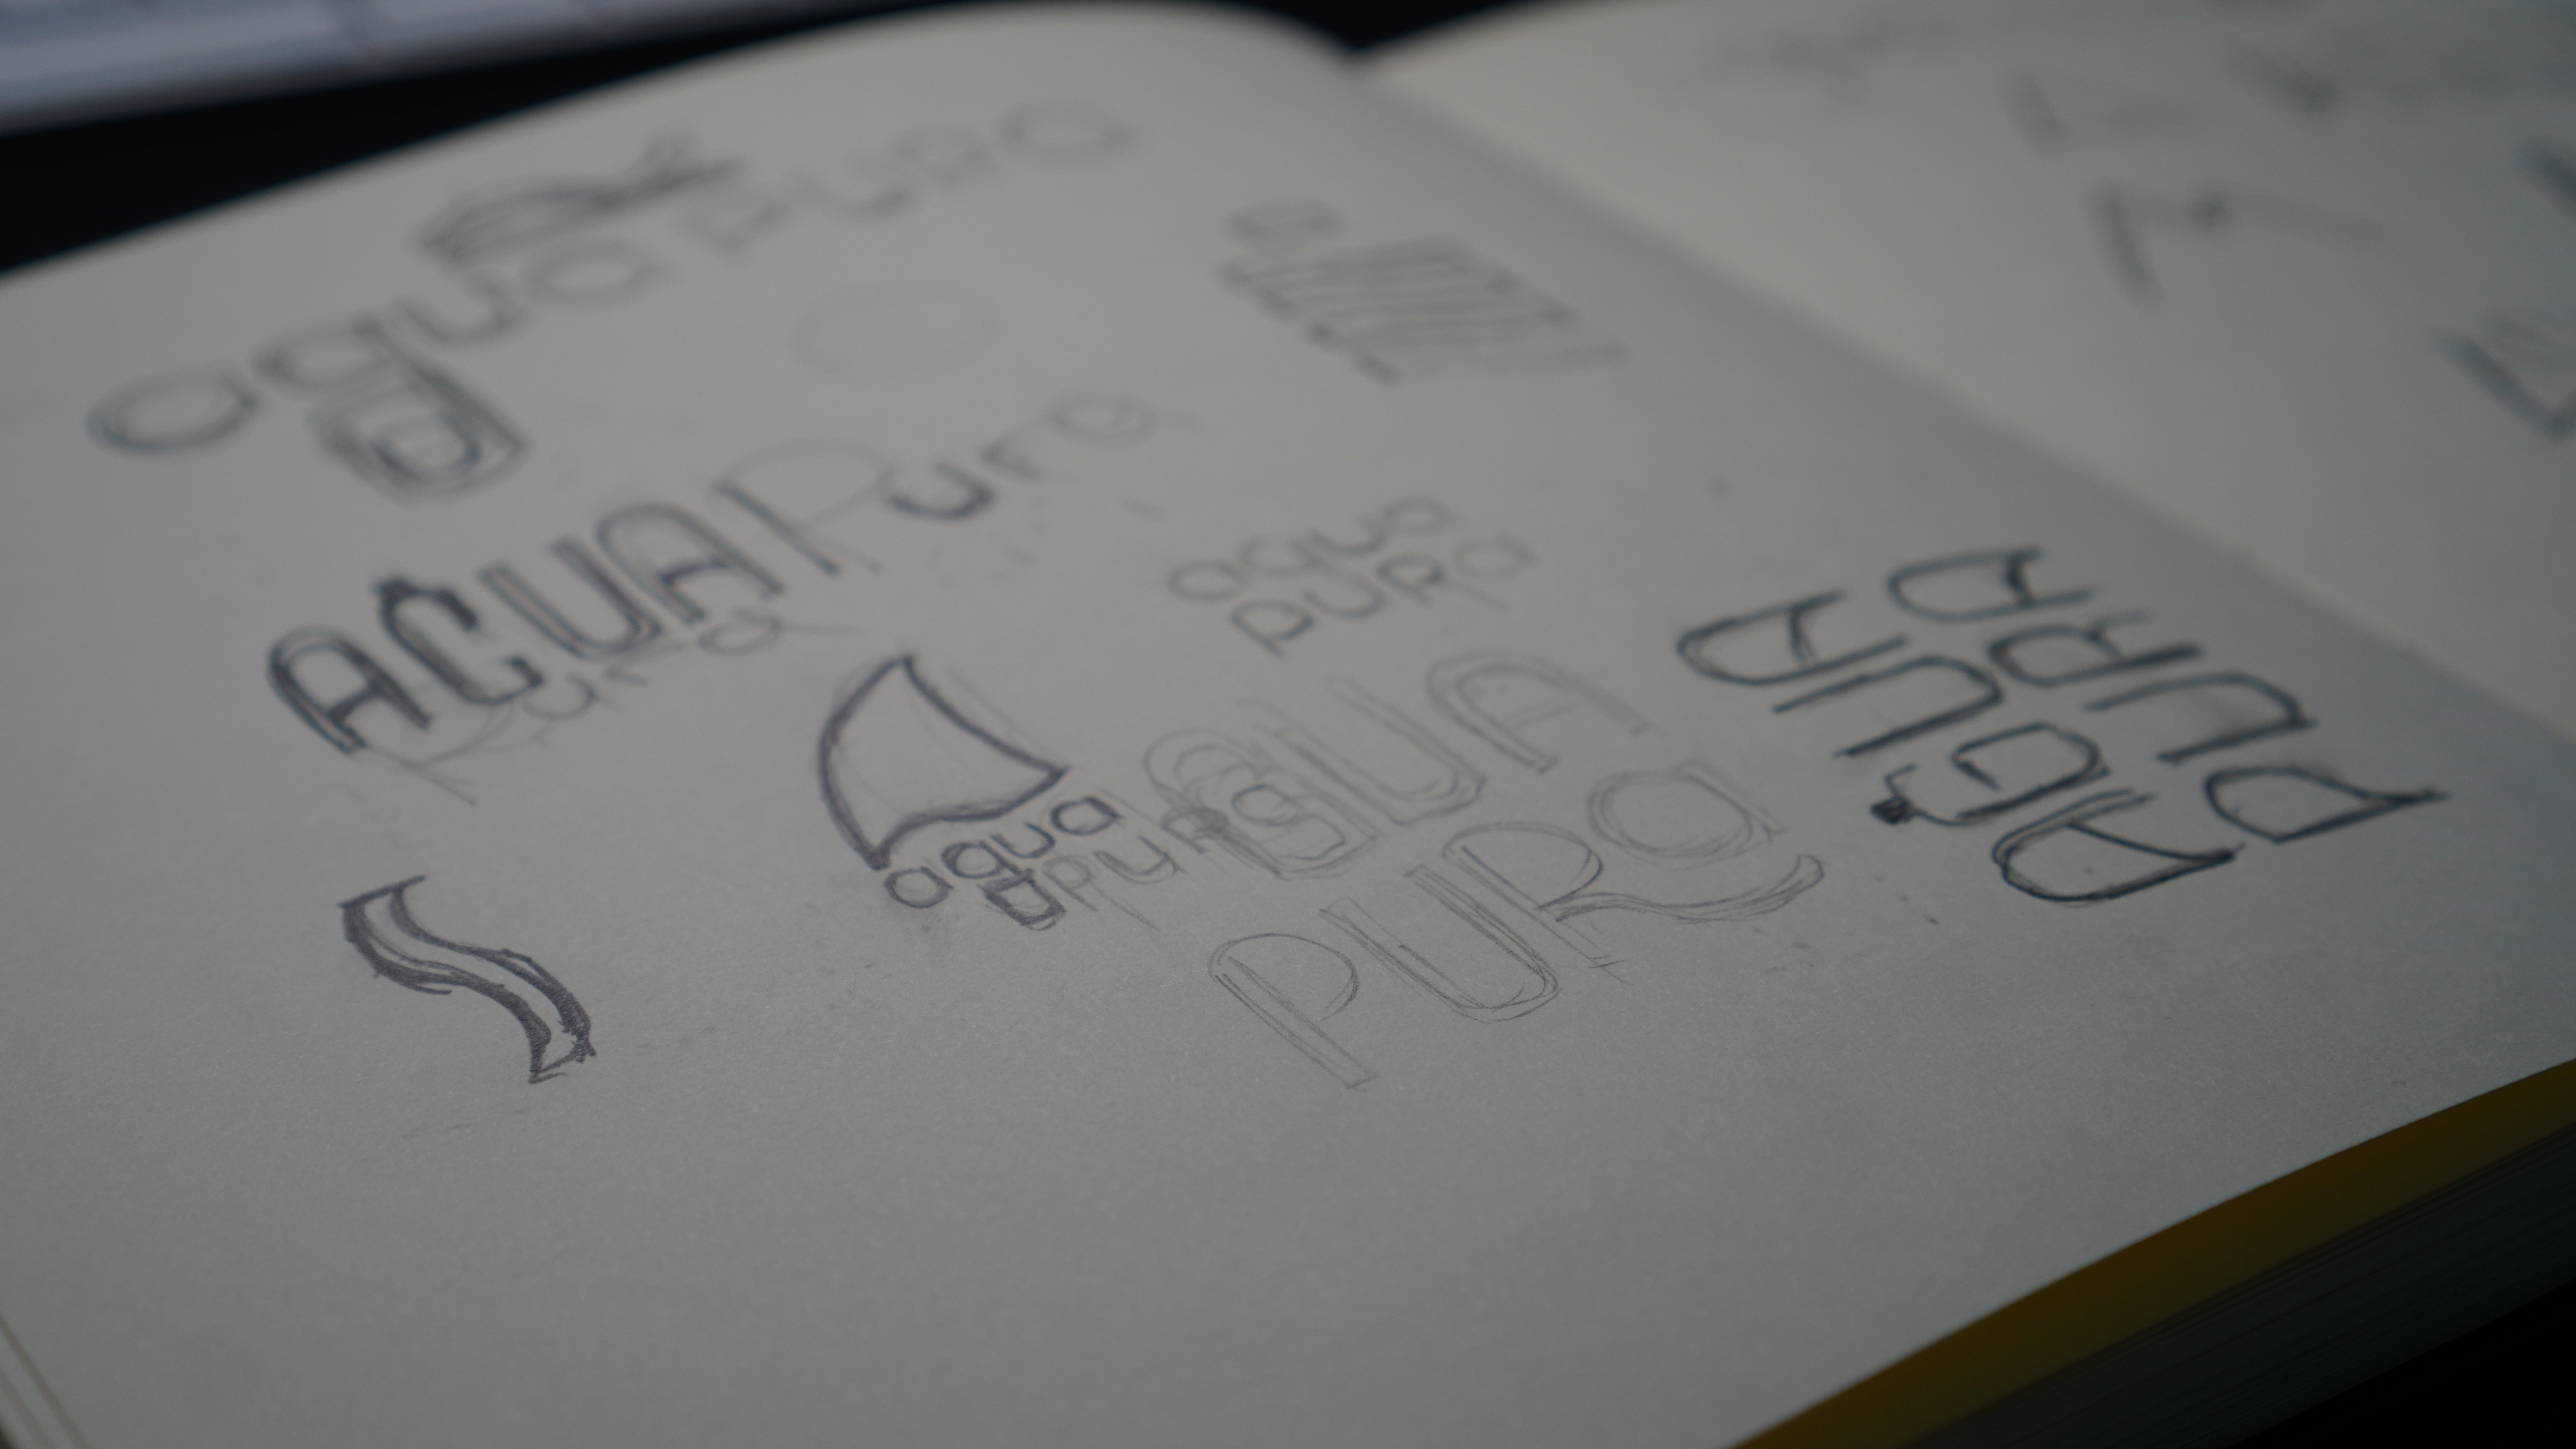 aqua pura
AGUA Pura
Pura
aqua
pura
aqua
pura
AGUA
PURa
AGUA
PURA